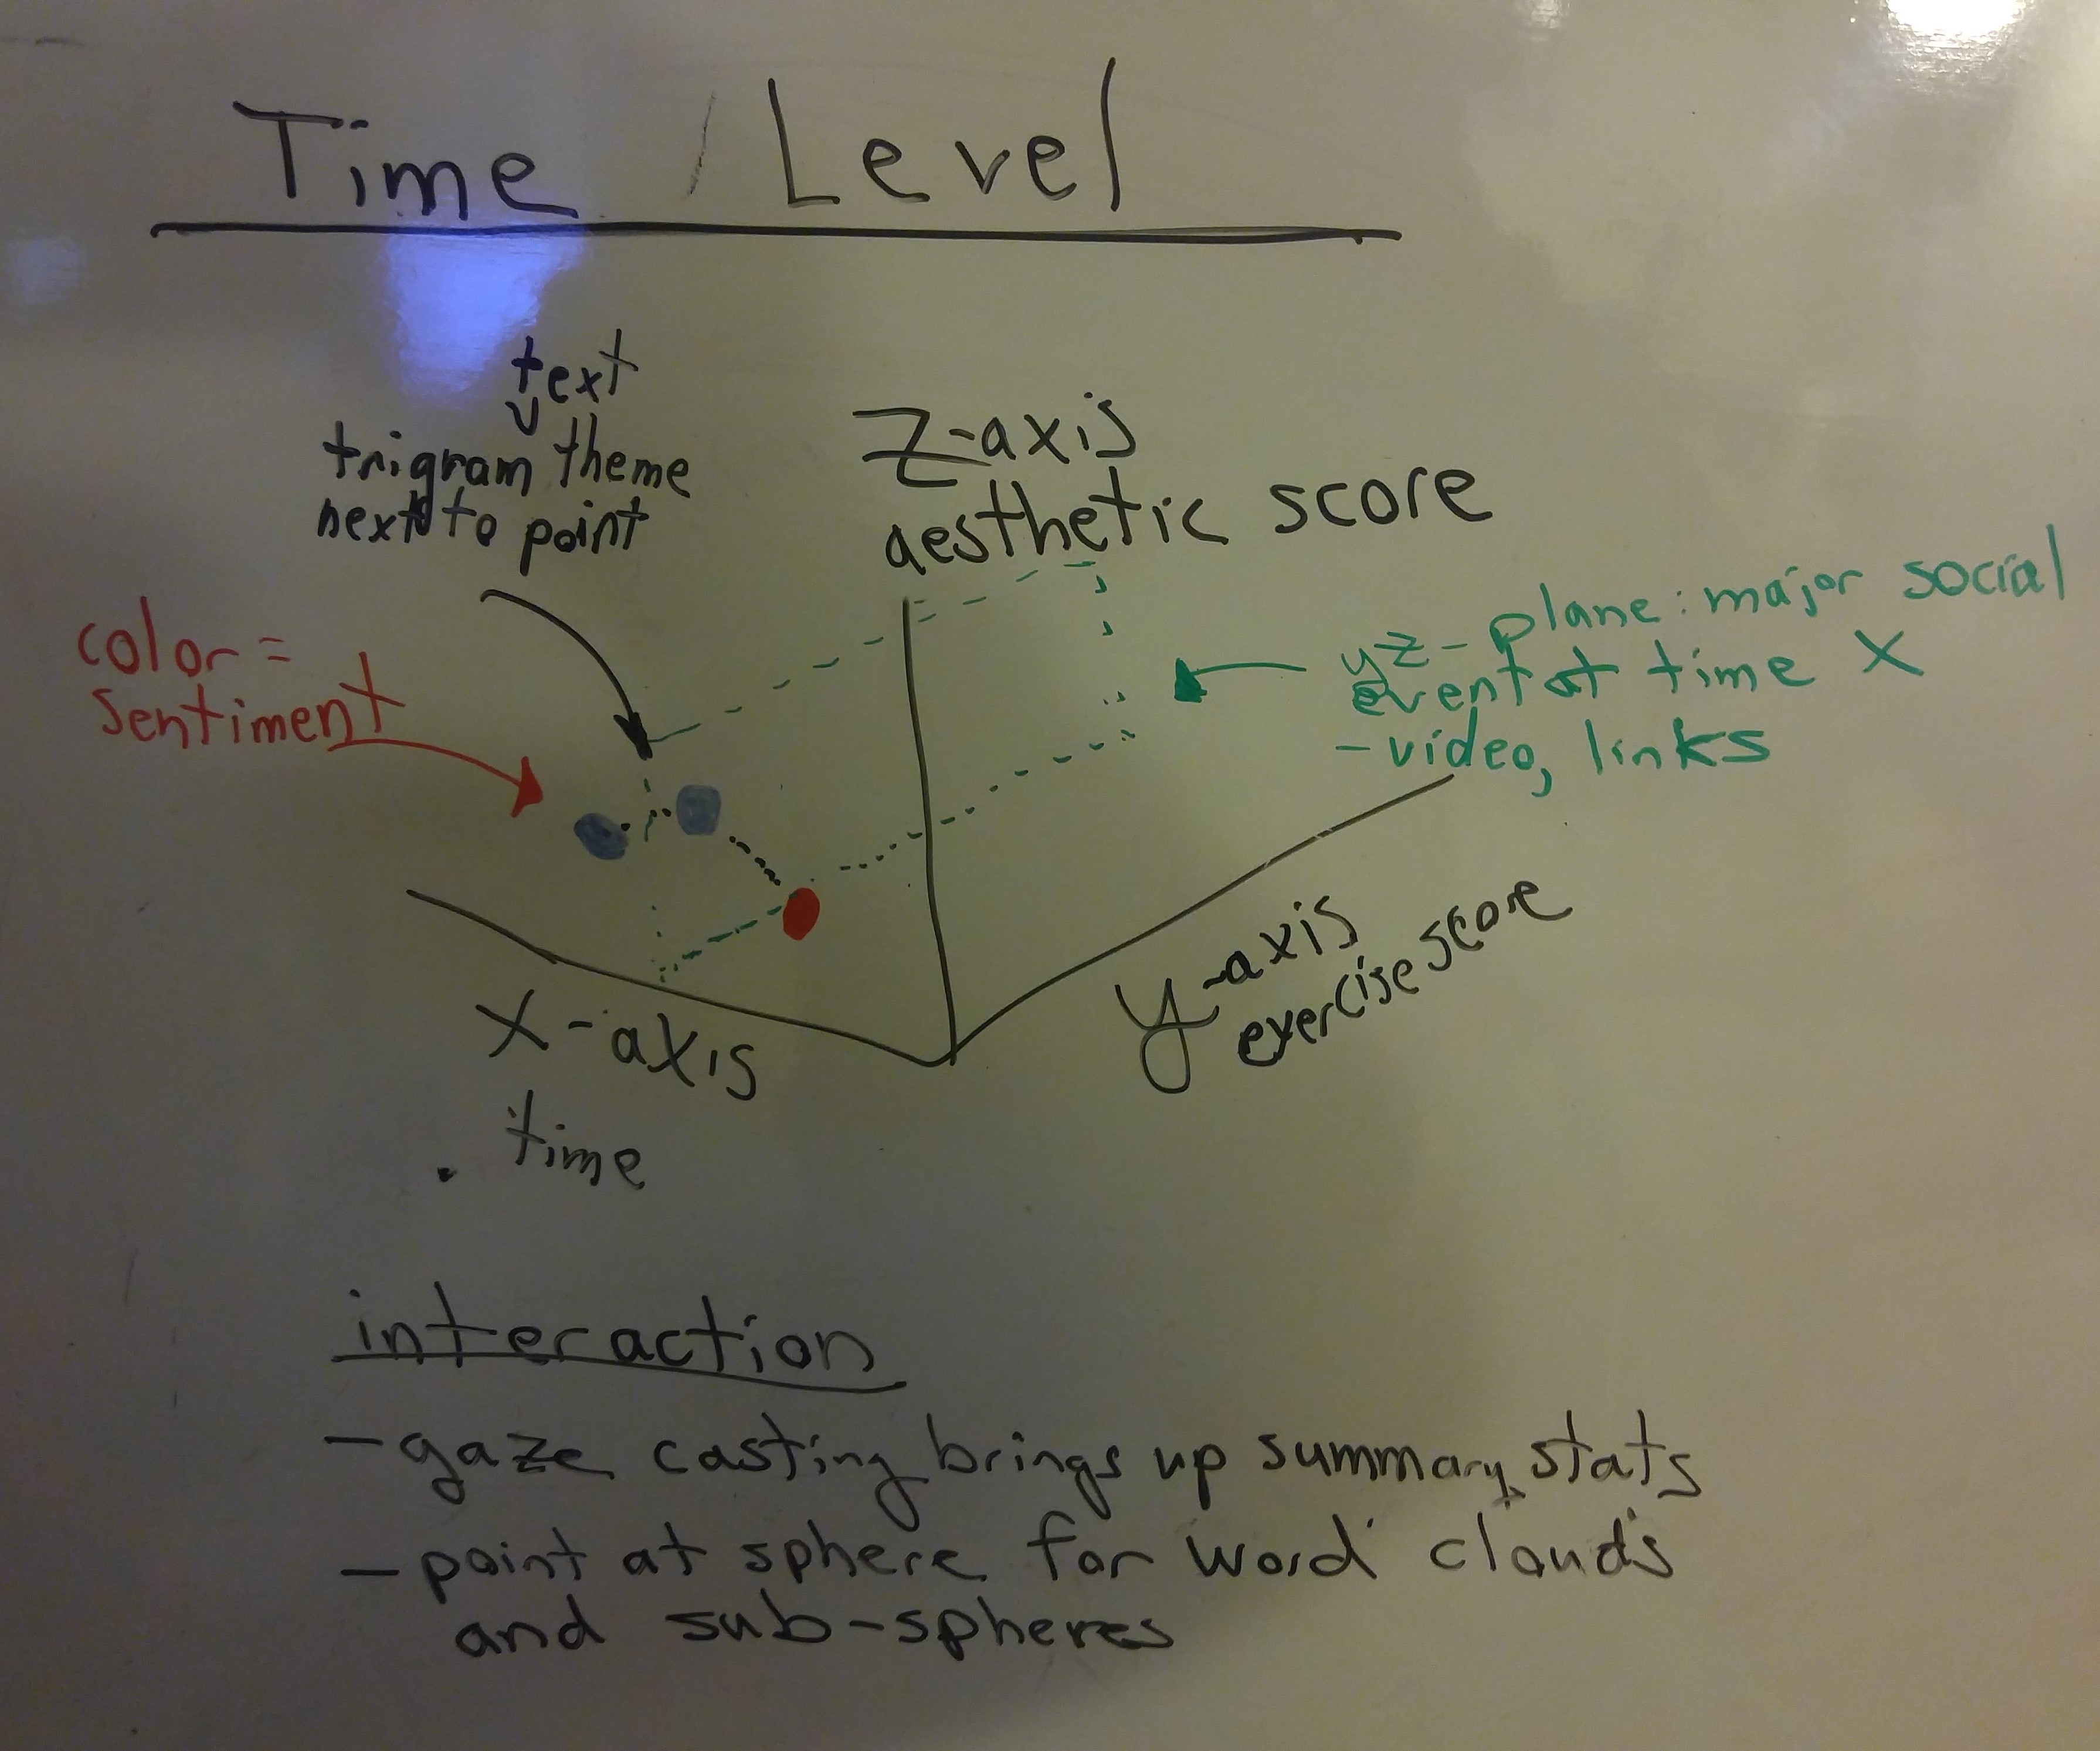 Time / Level
text
trigram theme
next to point
z-axis
aesthetic score
color =
sentiment
yz-plane: major social
event at time X
- video, links
y-axis
exercise score
x-axis
. time
interaction
- gaze casting brings up summary stats
- point at sphere for word clouds
and sub-spheres